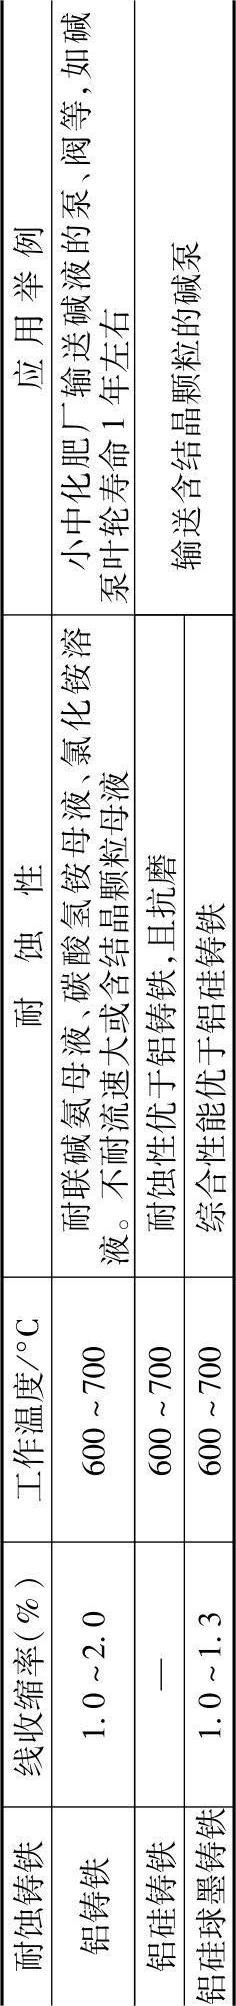 耐蚀铸铁 线收缩率(%) 工作温度/°C 耐蚀性 应用举例
铝铸铁 1.0~2.0 600~700 耐联碱氨母液、碳酸氢铵母液、氯化铵溶
液。不耐流速大或含结晶颗粒母液
小中化肥厂输送碱液的泵、阀等,如碱
泵叶轮寿命1年左右
铝硅铸铁 — 600~700 耐蚀性优于铝铸铁,且抗磨
输送含结晶颗粒的碱泵
铝硅球墨铸铁 1.0~1.3 600~700 综合性能优于铝硅铸铁